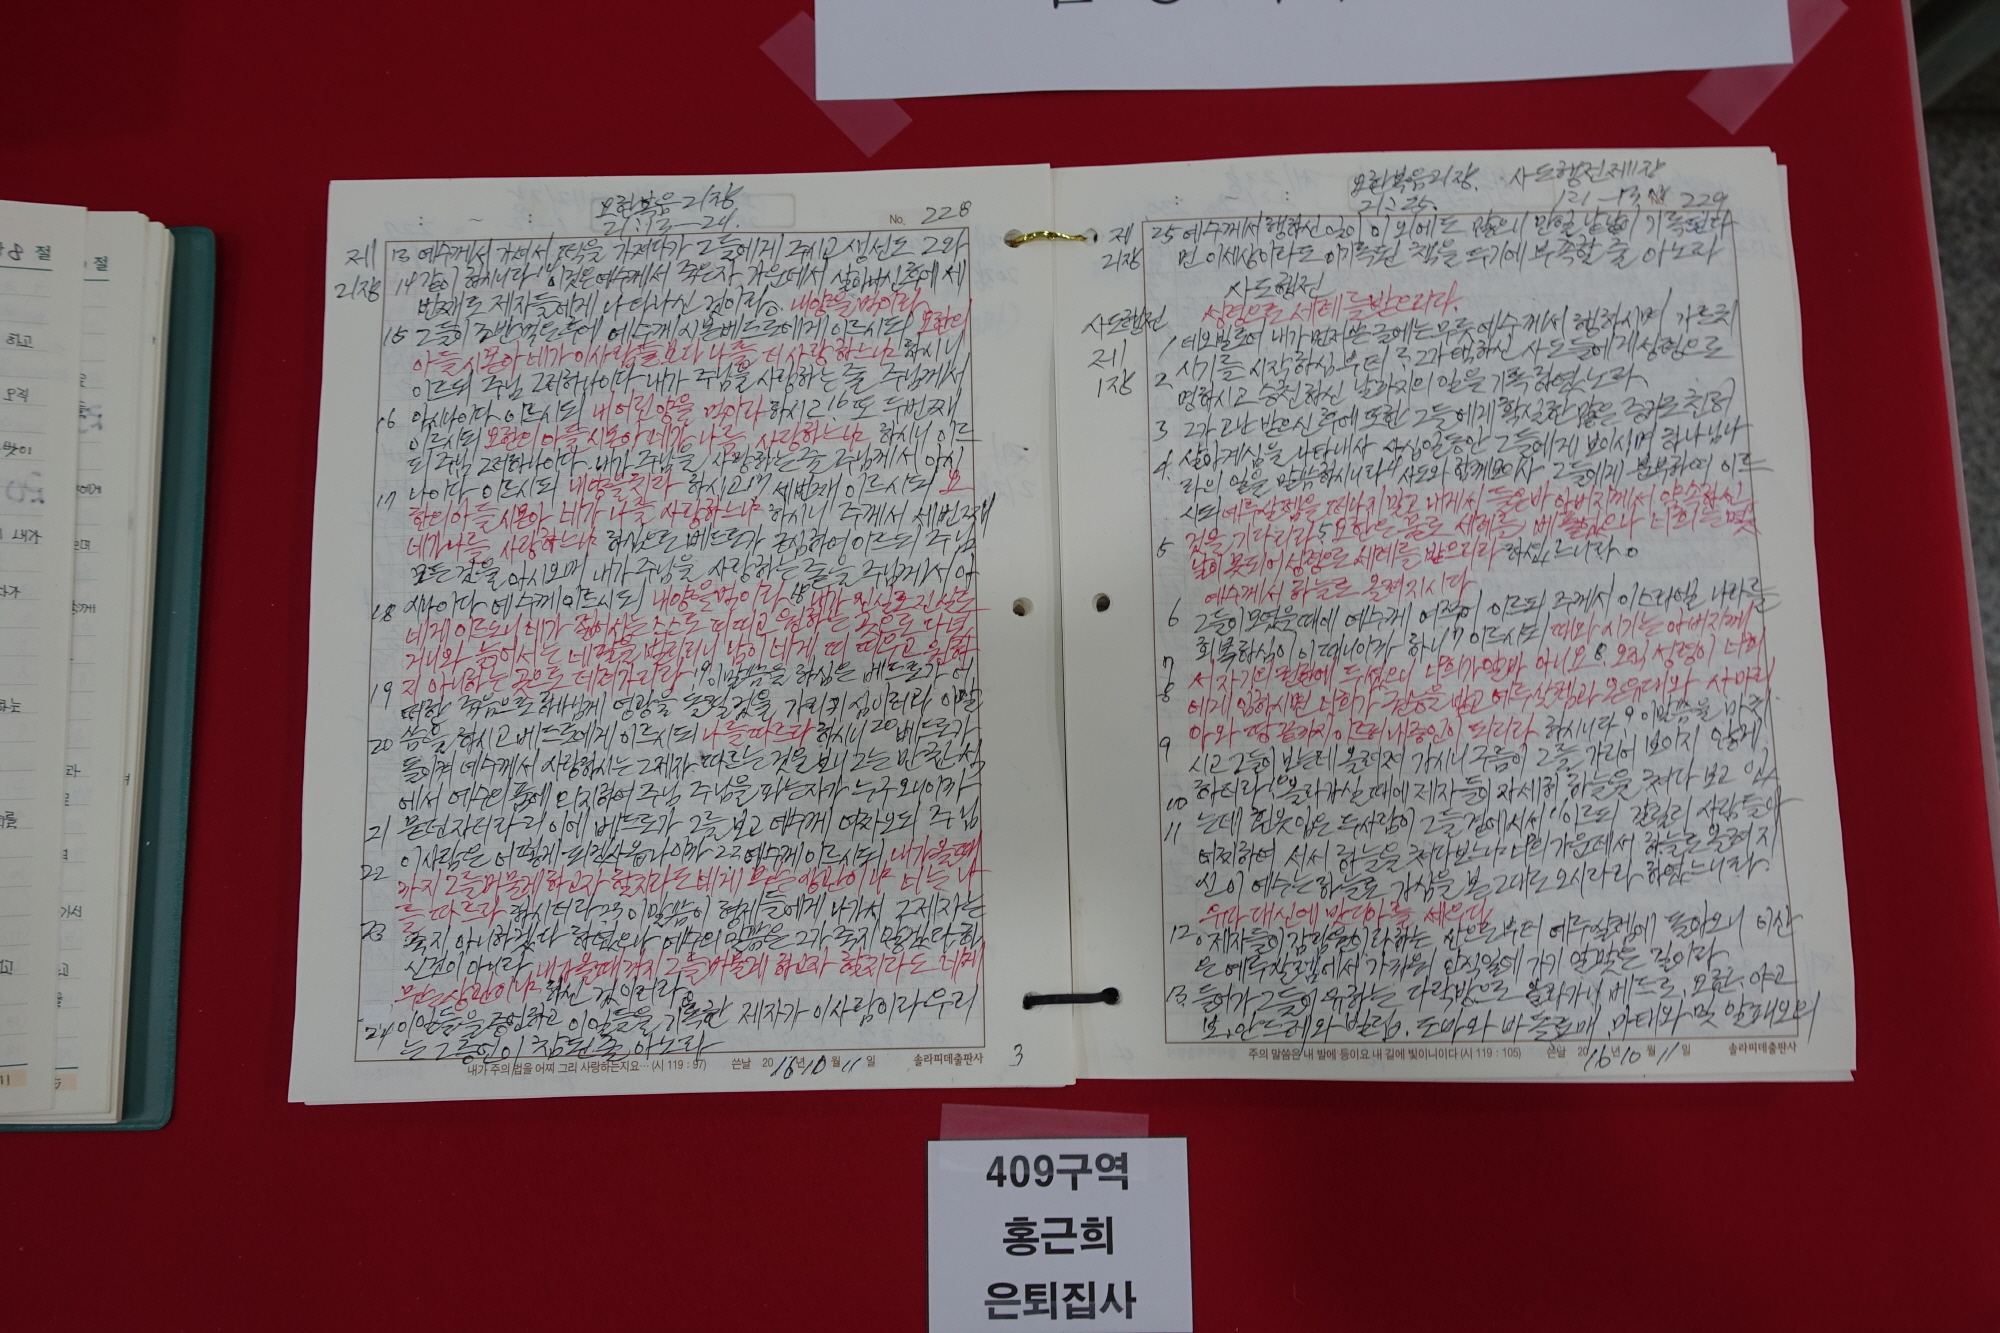 요한복음 21장
21:13-24.
No. 228
제 21장
13 예수께서 가셔서 떡을 가져다가 그들에게 주시고 생선도 그와
14 같이 하시니라 14 이것은 예수께서 죽은자 가운데서 살아나신 후에 세
번째로 제자들에게 나타나신 것이라. 내양을 먹이라
15 그들이 조반먹은 후에 예수께 시몬베드로에게 이르시되 요한의
아들 시몬아 네가 이사람들보다 나를 더 사랑하느냐 하시니
이르되 주님 그러하나이다 내가 주님을 사랑하는 줄 주님께서
16 아시나이다 이르시되 내 어린 양을 먹이라 하시고 16 또 두번째
이르시되 요한의 아들 시몬아 네가 나를 사랑하느냐 하시니 이르
되 주님 그러하나이다 내가 주님을 사랑하는 줄 주님께서 아시
17 나이다 이르시되 내양을 치라 하시고 17 세번째 이르시되 요
한의 아들 시몬아 네가 나를 사랑하느냐 하시니 주께서 세번째
네가 나를 사랑하느냐 하심으로 베드로가 근심하여 이르되 주님
모든 것을 아시오매 내가 주님을 사랑하는 줄을 주님께서 아
18 시나이다 예수께 이르시되 내양을 먹이라 18 내가 진실로 진실로
네게 이르노니 네가 젊어서는 스스로 띠 띠고 원하는 곳으로 다녔
거니와 늙어서는 네 팔을 벌리리니 남이 네게 띠 띠우고 원하
19 지 아니하는 곳으로 데려가리라 19 이 말씀을 하심은 베드로가 어
떠한 죽음으로 하나님께 영광을 돌릴 것을 가리키심이러라 이 말
20 씀을 하시고 베드로에게 이르시되 나를 따르라 하시니 20 베드로가
돌이켜 예수께서 사랑하시는 그 제자 따르는 것을 보니 그는 만찬석
에서 예수의 품에 의지하여 주님 주님을 파는 자가 누구오니이까
21 묻던 자더라 21 이에 베드로가 그를 보고 예수께 여짜오되 주님
이 사람은 어떻게 되겠사옵나이까 22 예수께 이르시되 내가 올 때
22 까지 그를 머물게 하고자 할지라도 네게 무슨 상관이냐 너는 나
를 따르라 하시더라 23 이 말씀이 형제들에게 나가서 그 제자는
23 죽지 아니하겠다 하였으나 예수의 말씀은 그가 죽지 않겠다 하
신 것이 아니라 내가 올 때까지 그를 머물게 하고자 할지라도 네게
무슨 상관이냐 하신 것이러라
24 이 일들을 증언하고 이 일들을 기록한 제자가 이 사람이라 우리
는 그 증언이 참된 줄 아노라
내가 주의 법을 어찌 그리 사랑하는지요… (시 119 : 97) 쓴날 2016년 10월 11일 솔라피데출판사
3
요한복음 21장. 사도행전 제1장
21:25. 1:1-13 No. 229
제 21장
25 예수께서 행하신 일이 이 외에도 많으니 만일 낱낱이 기록된다
면 이 세상이라도 이 기록된 책을 두기에 부족할 줄 아노라
사도행전
사도행전 제1장
성령으로 세례를 받으리라.
1 데오빌로여 내가 먼저 쓴 글에는 무릇 예수께서 행하시며 가르치
2 시기를 시작하심부터 2 그가 택하신 사도들에게 성령으로
명하시고 승천하신 날까지의 일을 기록하였노라
3 그가 고난 받으신 후에 또한 그들에게 확실한 많은 증거로 친히
4 살아계심을 나타내사 사십일동안 그들에게 보이시며 하나님 나
라의 일을 말씀하시니라 4 사도와 함께 모이사 그들에게 분부하여 이르
시되 예루살렘을 떠나지 말고 내게서 들은바 아버지께서 약속하신
5 것을 기다리라 5 요한은 물로 세례를 베풀었으나 너희는 몇
날이 못되어 성령으로 세례를 받으리라 하셨느니라.
예수께서 하늘로 올려지시다
6 그들이 모였을 때에 예수께 여짜와 이르되 주께서 이스라엘 나라를
회복하심이 이 때니이까 하니 7 이르시되 때와 시기는 아버지께
7 서 자기의 권한에 두셨으니 너희가 알바 아니요 8 오직 성령이 너희
8 에게 임하시면 너희가 권능을 받고 예루살렘과 온 유대와 사마리
아와 땅 끝까지 이르러 내 증인이 되리라 하시니라 9 이 말씀을 마치
9 시고 그들이 보는데 올려져 가시니 구름이 그를 가리어 보이지 않게
하더라 10 올라가실 때에 제자들이 자세히 하늘을 쳐다 보고 있
10 는데 흰옷 입은 두사람이 그들 곁에 서서 11 이르되 갈릴리 사람들아
11 어찌하여 서서 하늘을 쳐다보느냐 너희 가운데서 하늘로 올려지
신 이 예수는 하늘로 가심을 본 그대로 오시리라 하였느니라.
유다 대신에 맛디아를 세우다
12 제자들이 감람원이라 하는 산으로부터 예루살렘에 돌아오니 이 산
은 예루살렘에서 가까워 안식일에 가기 알맞은 길이라
13 들어가 그들이 유하는 다락방으로 올라가니 베드로, 요한, 야고
보, 안드레와 빌립, 도마와 바돌로매, 마태와 및 알패오의
주의 말씀은 내 발에 등이요 내 길에 빛이니이다 (시 119 : 105) 쓴날 2016년 10월 11일 솔라피데출판사
409구역
홍근희
은퇴집사